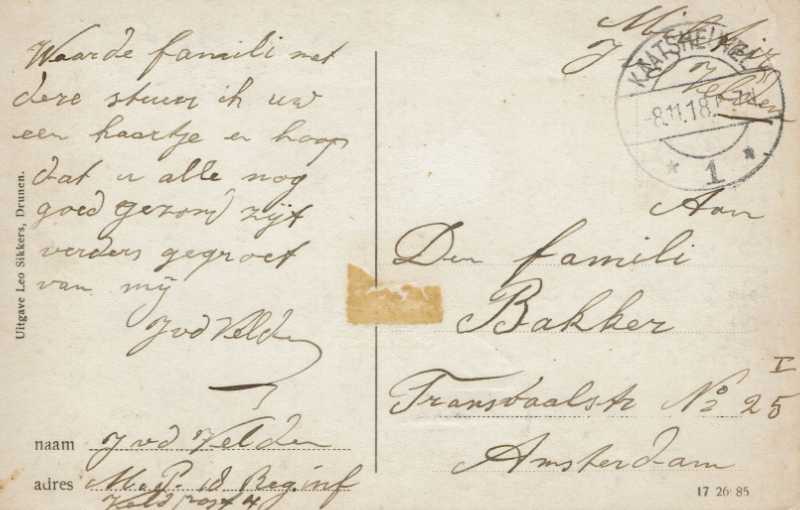 Waarde famili met
deze stuur ik uw
een kaartje en hoop
dat u alle nog
goed gezond zijt
verders gegroet
van mij
J vd Velden
naam J vd Velden
adres M.C.P. 18 Reg. inf
Veld post 4
Uitgave Leo Sikkers, Drunen.
J vd Velden
KAATSHEUVEL
-8.11.18.
* 1 *
Aan
Den famili
Bakker
Transvaalstr No 25 I
Amsterdam
17 26 85